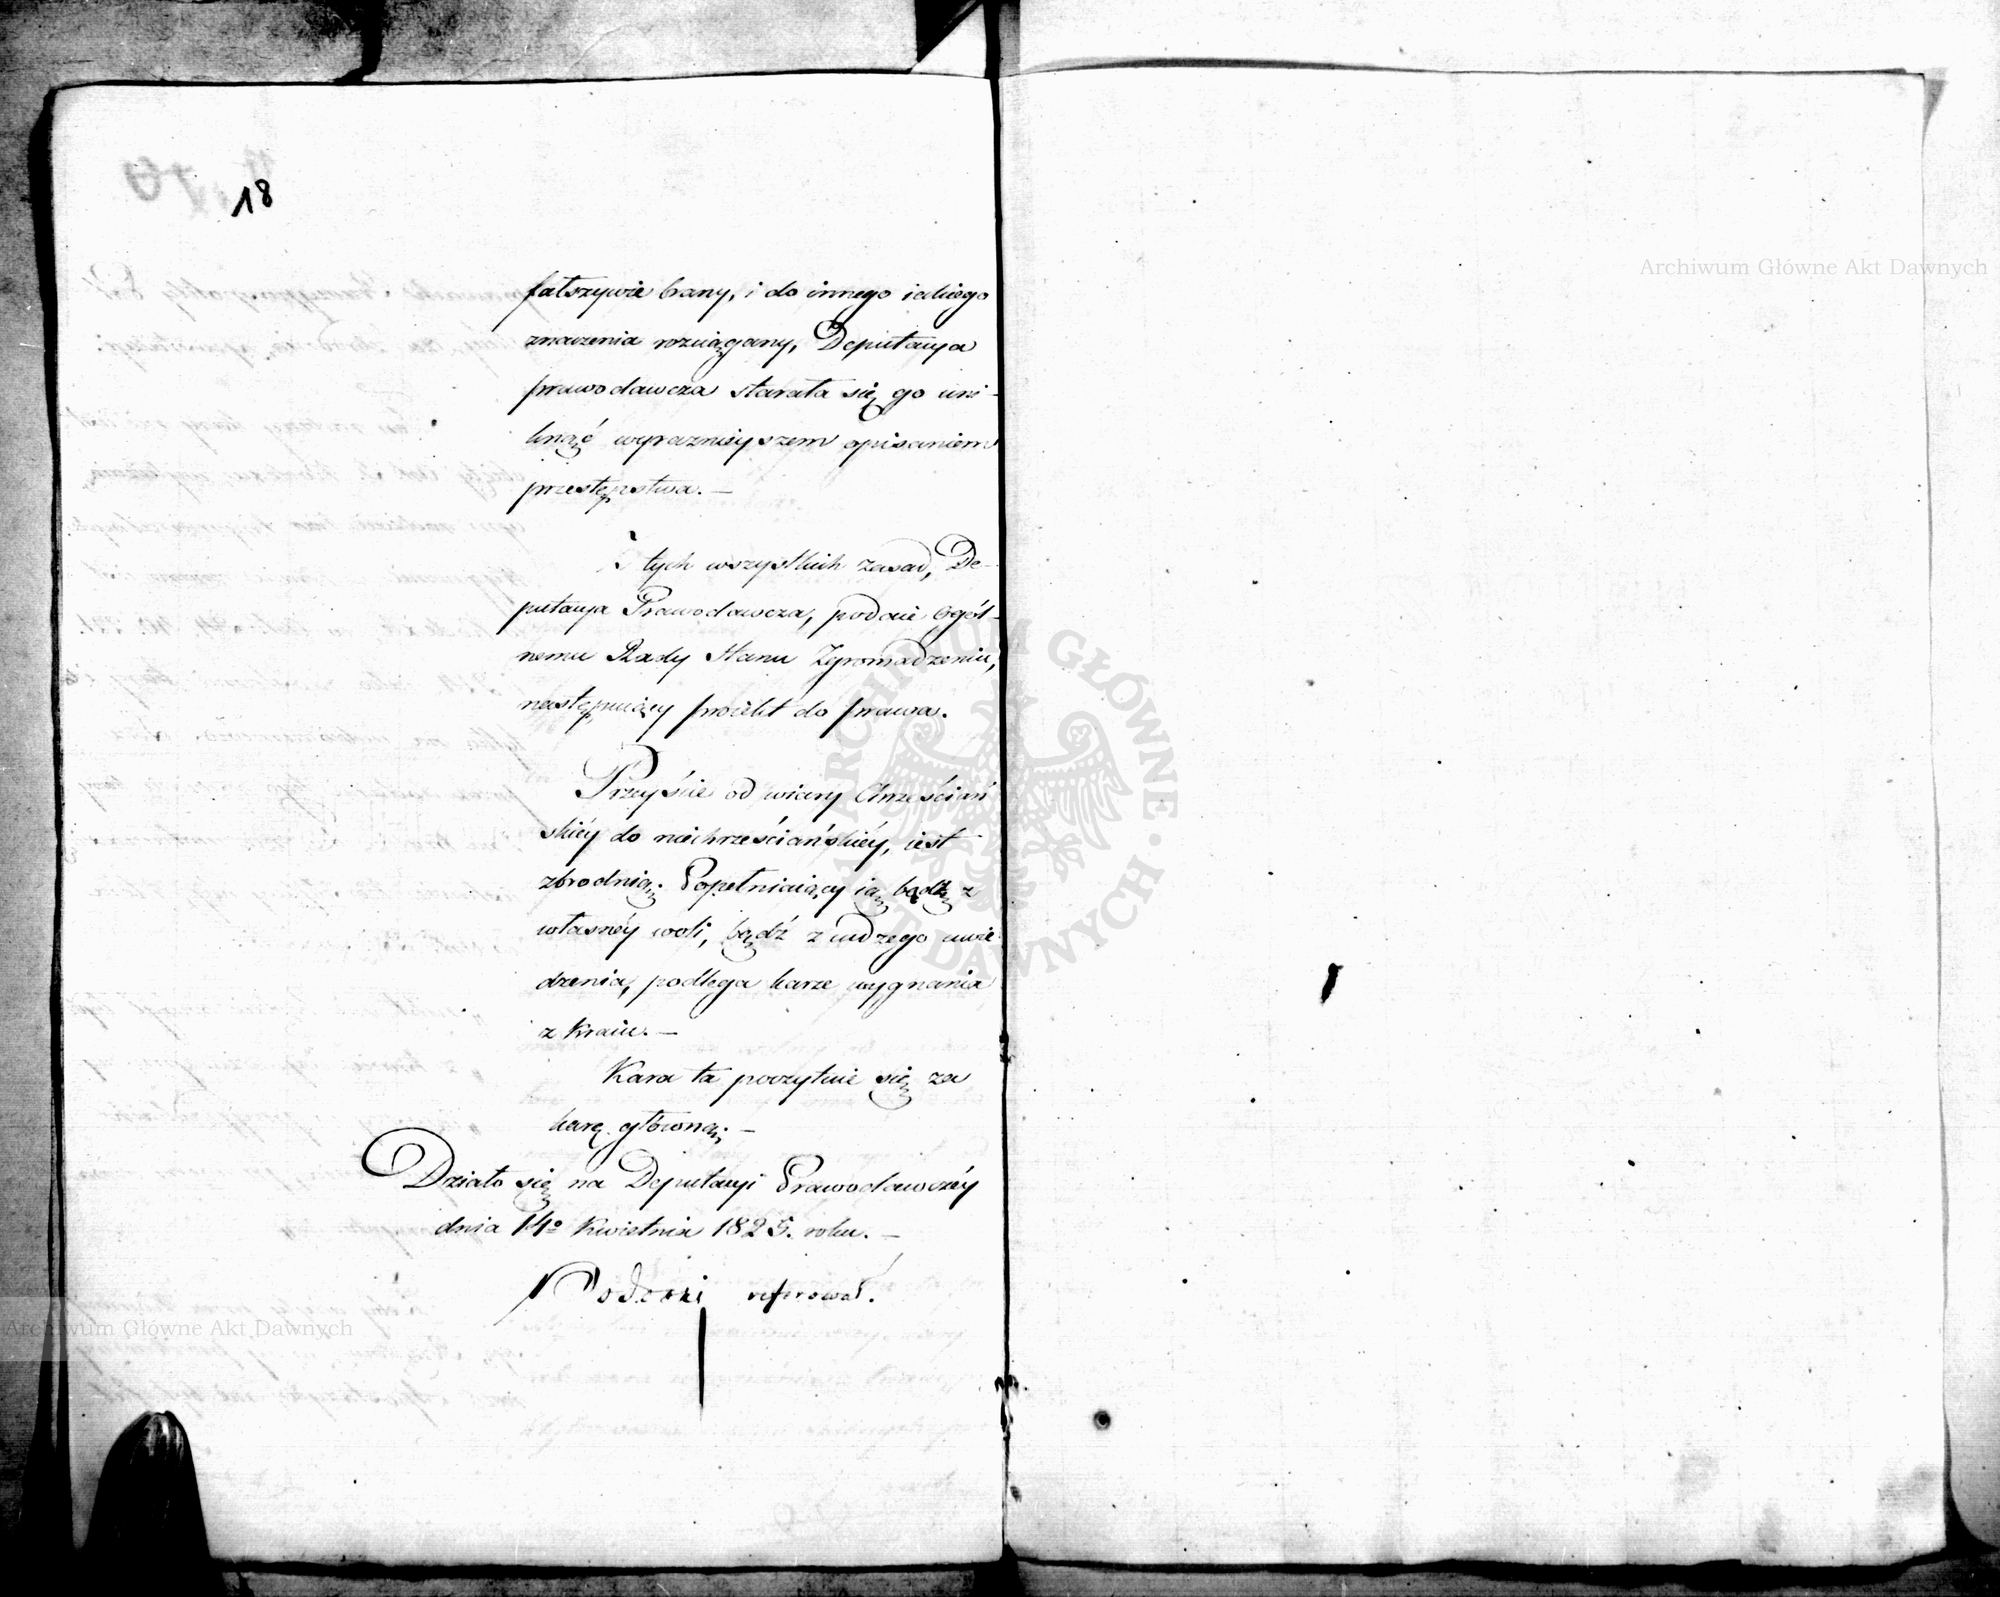 18
fałszywie brany, i do innego iakiego
znaczenia rozciągany, Deputacya
prawodawcza starała się go uni-
knąć wyraznieyszem opisaniem
przestępstwa. —
Z tych wszystkich zasad, De-
putacya Prawodawcza, podaie Ogól-
nemu Rady Stanu Zgromadzeniu,
następuiący proiekt do prawa.
Przeyście od wiary Chrześciań
skiéy do niechrześciańskiéy, iest
zbrodnią. Popełniaiący ią bądź z
własnéy woli, bądź z cudzego uwie-
dzenia, podlega karze wygnania
z Kraiu. —
Kara ta poczytuie się za
karę główną. —
Działo się na Deputacyi Prawodawczéy
dnia 14º Kwietnia 1825. roku. —
referował.
Archiwum Główne Akt Dawnych
Archiwum Główne Akt Dawnych
ARCHIWUM GŁÓWNE AKT DAWNYCH